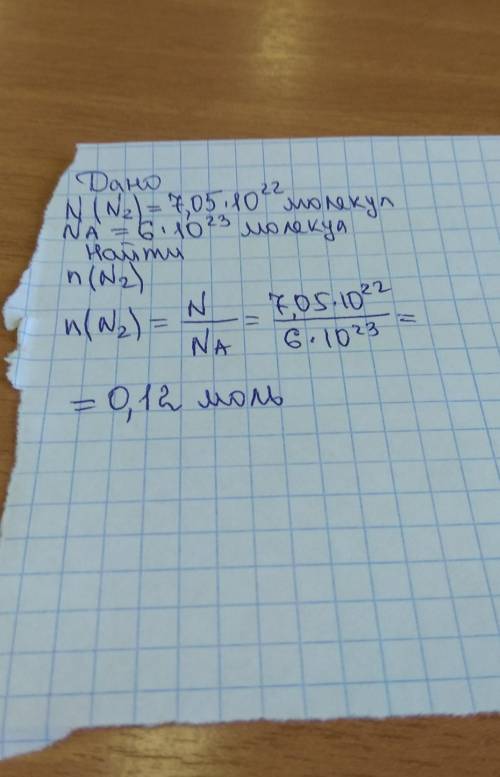 Дано
N(N₂) = 7,05·10²² молекул
NA = 6·10²³ молекул
Найти
n(N₂)
n(N₂) = N/NA = 7,05·10²²/6·10²³ =
= 0,12 моль